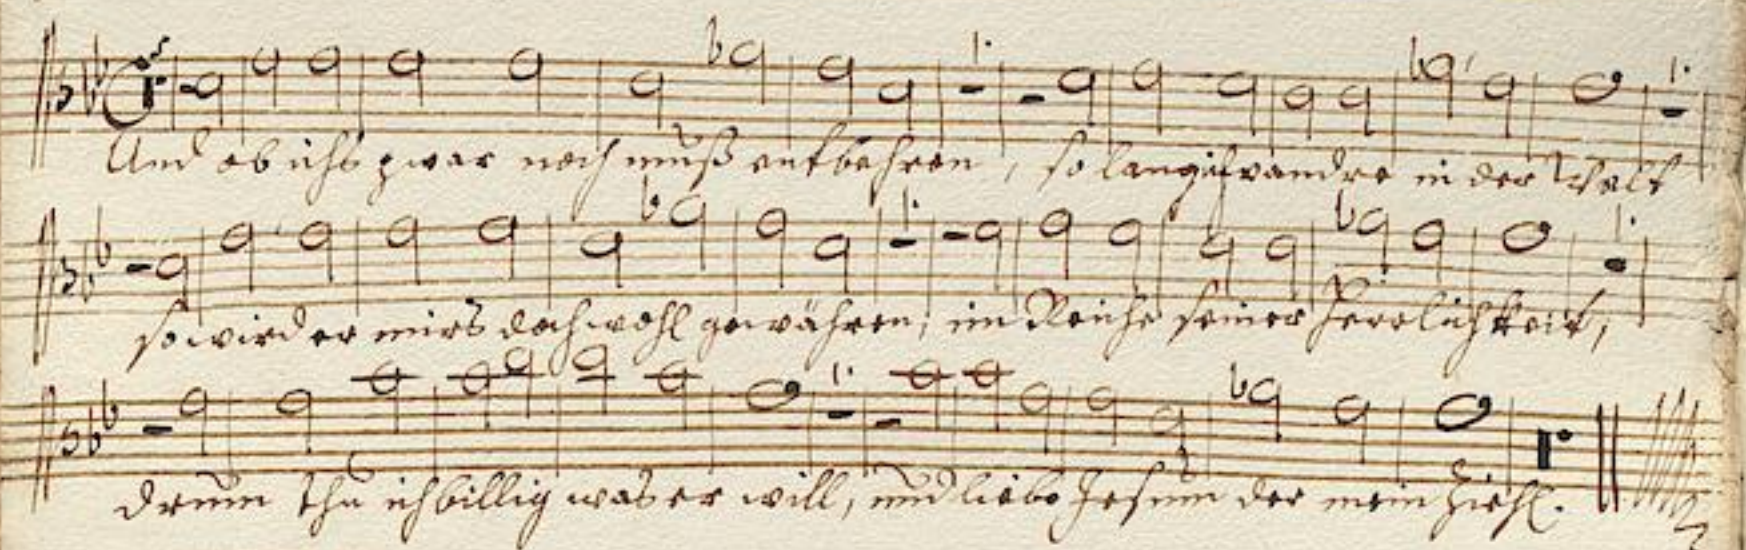 Und ob ichs zwar noch muß entbehren, so lang ich wandre in der Welt
so wird er mirs doch wohl gewähren, im Reiche seiner Herrlichkeit,
drum thu ich billig was er will, und liebe Jesum der mein Ziehl.